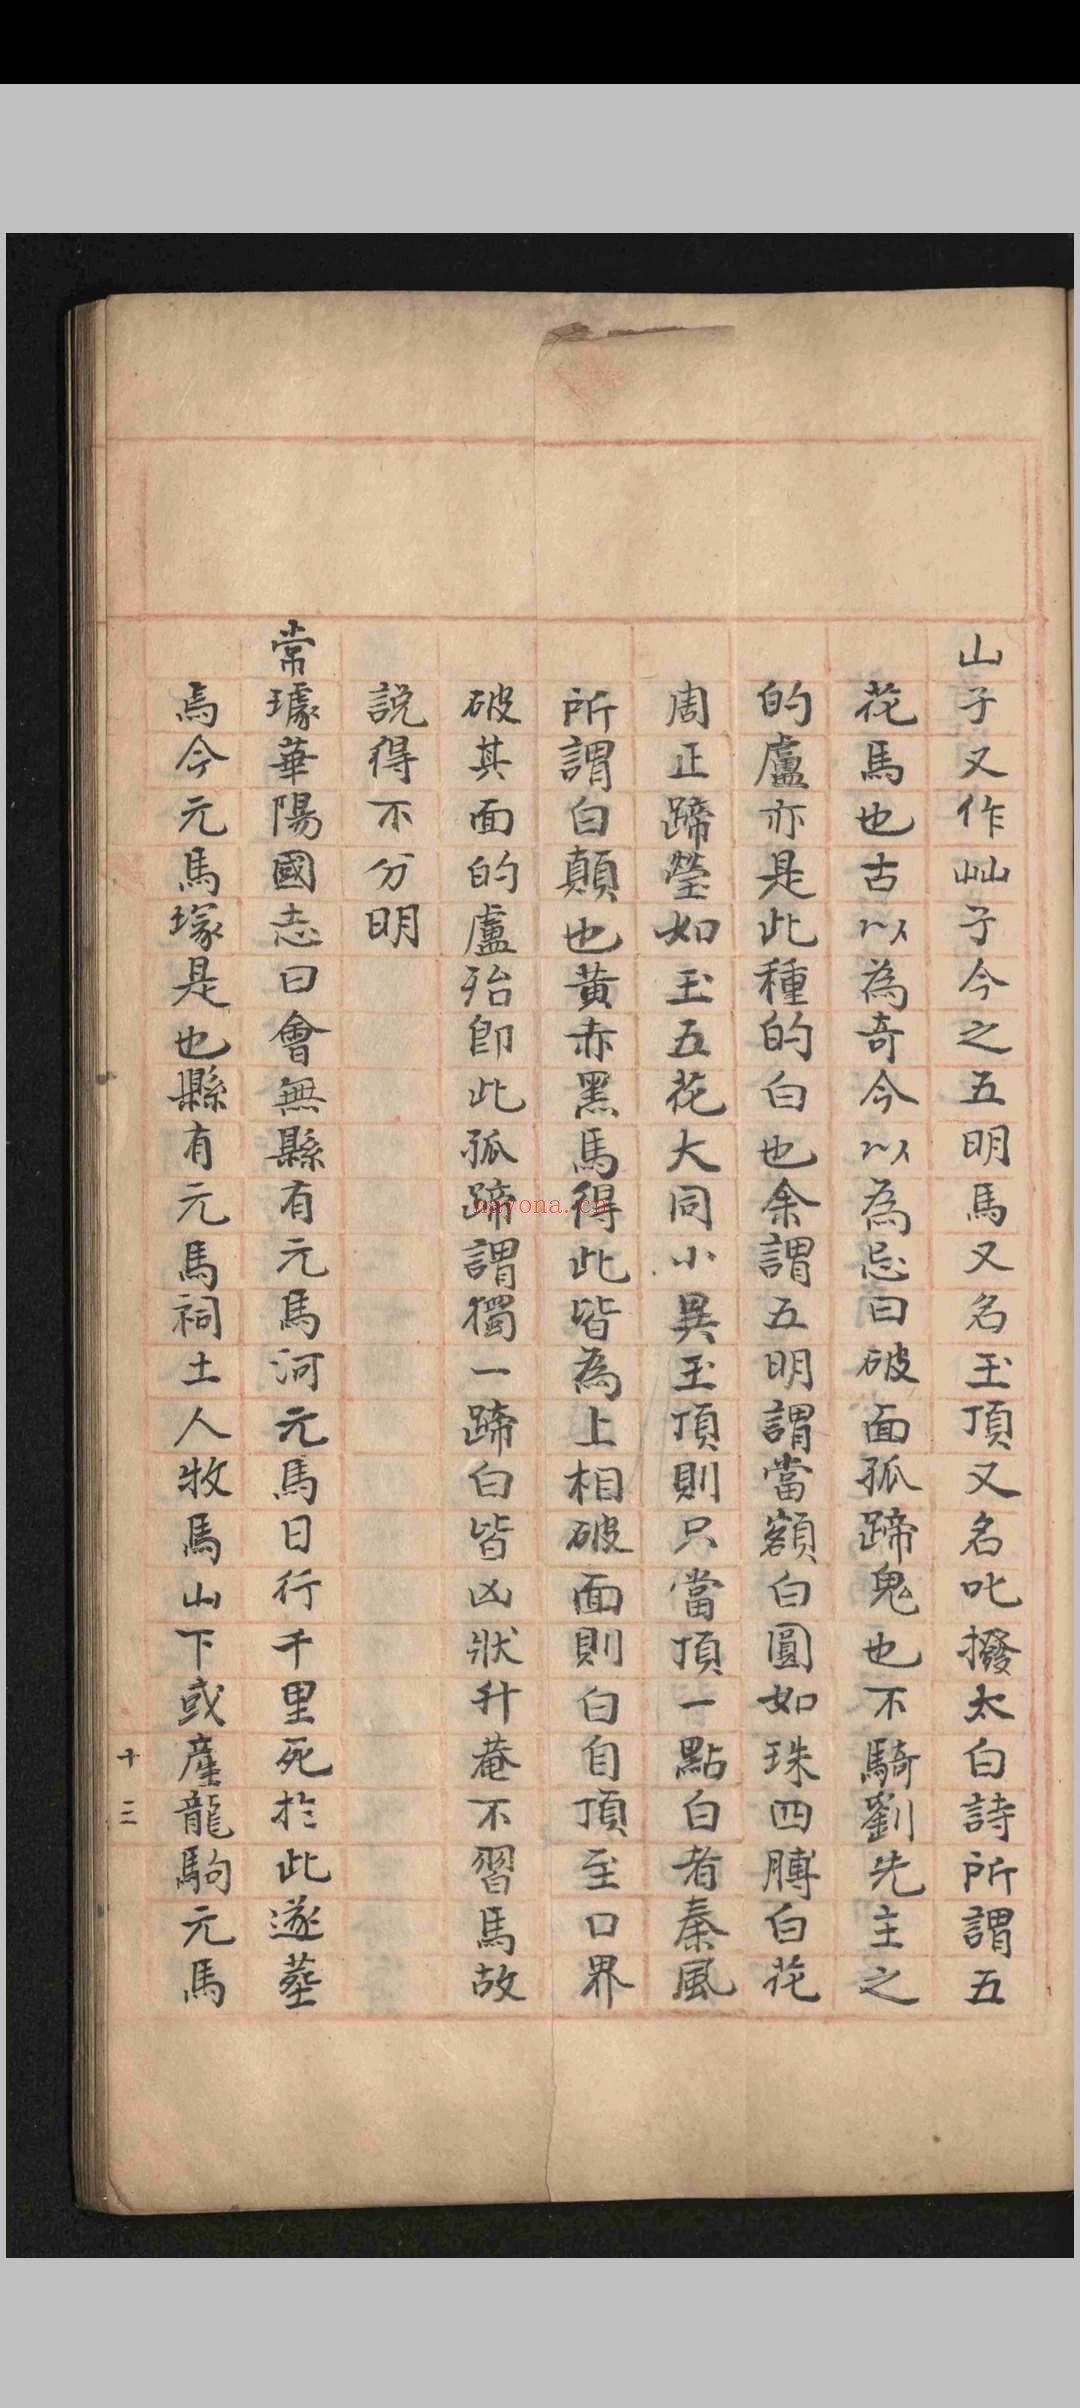 山子又作屾子今之五明馬又名玉頂又名叱撥太白詩所謂五
花馬也古以為奇今以為忌曰破面孤蹄鬼也不騎劉先主之
的盧亦是此種的白也余謂五明謂當額白圓如珠四膊白花
周正蹄瑩如玉五花大同小異玉頂則只當頂一點白者秦風
所謂白顛也黃赤黑馬得此皆為上相破面則白自頂至口界
破其面的盧殆即此孤蹄謂獨一蹄白皆凶狀升菴不習馬故
説得不分明
常璩華陽國志曰會無縣有元馬河元馬日行千里死於此遂塟
焉今元馬塚是也縣有元馬祠土人牧馬山下或產龍駒元馬
十三
nayona.cn